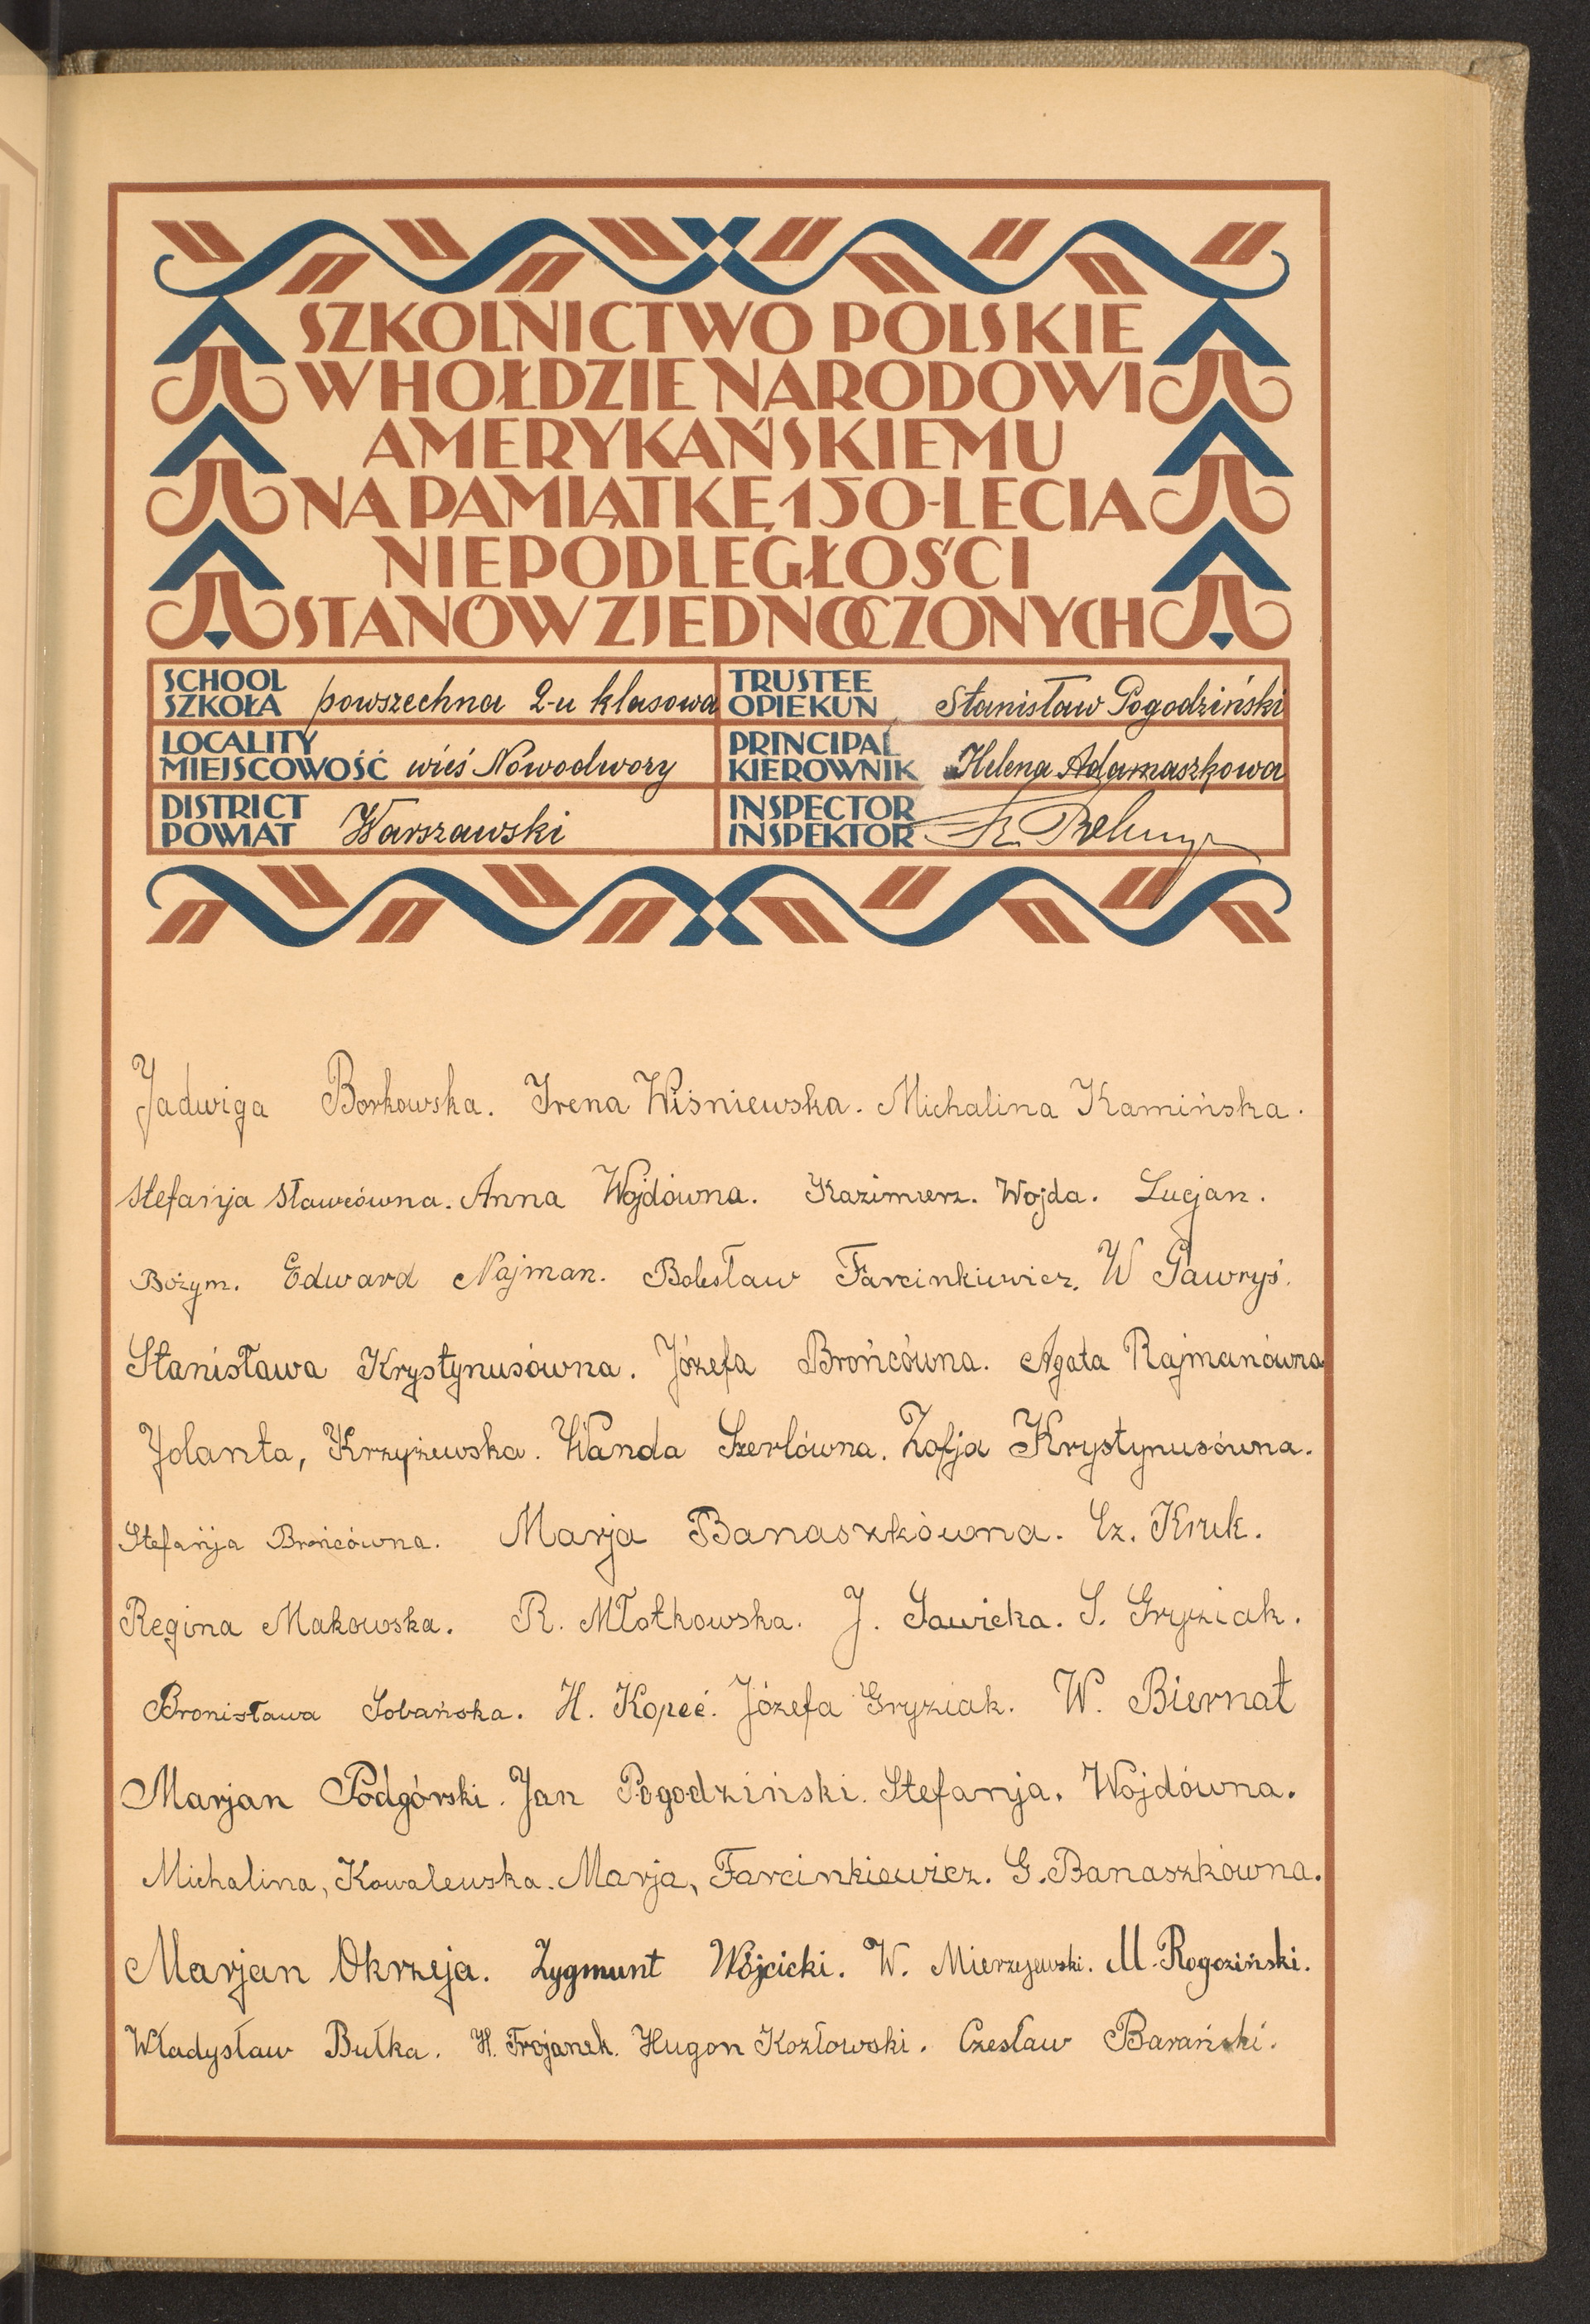 SZKOLNICTWO POLSKIE
W HOŁDZIE NARODOWI
AMERYKAŃSKIEMU
NA PAMIĄTKĘ 150-LECIA
NIEPODLEGŁOŚCI
STANÓW ZJEDNOCZONYCH
SCHOOL
SZKOŁA powszechna 2-u klasowa
TRUSTEE
OPIEKUN Stanisław Pogodziński
LOCALITY
MIEJSCOWOŚĆ wieś Nowodwory
PRINCIPAL
KIEROWNIK Helena Adamaszkowa
DISTRICT
POWIAT Warszawski
INSPECTOR
INSPEKTOR
Jadwiga Borkowska. Irena Wiśniewska. Michalina Kamińska.
Stefańja Sławcówna. Anna Wojdówna. Kazimierz. Wojda. Lucjan.
Bożym. Edward Najman. Bolesław Farcinkiewicz. W Gawryś.
Stanisława Krystynusówna. Józefa Brońcówna. Agata Rajmanówna
Jolanta, Krzyżewska. Wanda Szerlówna. Zofja Krystynusówna.
Stefańja Brońcówna. Marja Banaszkówna. Cz. Kruk.
Regina Makowska. R. Młotkowska. J. Sawicka. S. Gryziak.
Bronisława Sobańska. H. Kopeć. Józefa Gryziak. W. Biernat
Marjan Podgórski. Jan Pogodziński. Stefanja. Wojdówna.
Michalina, Kowalewska. Marja, Farcinkiewicz. G. Banaszkówna.
Marjan Okrzeja. Zygmunt Wójcicki. W. Mierzejewski. M. Rogoziński.
Władysław Bułka. H. Trojanek. Hugon Kozłowski. Czesław Barański.